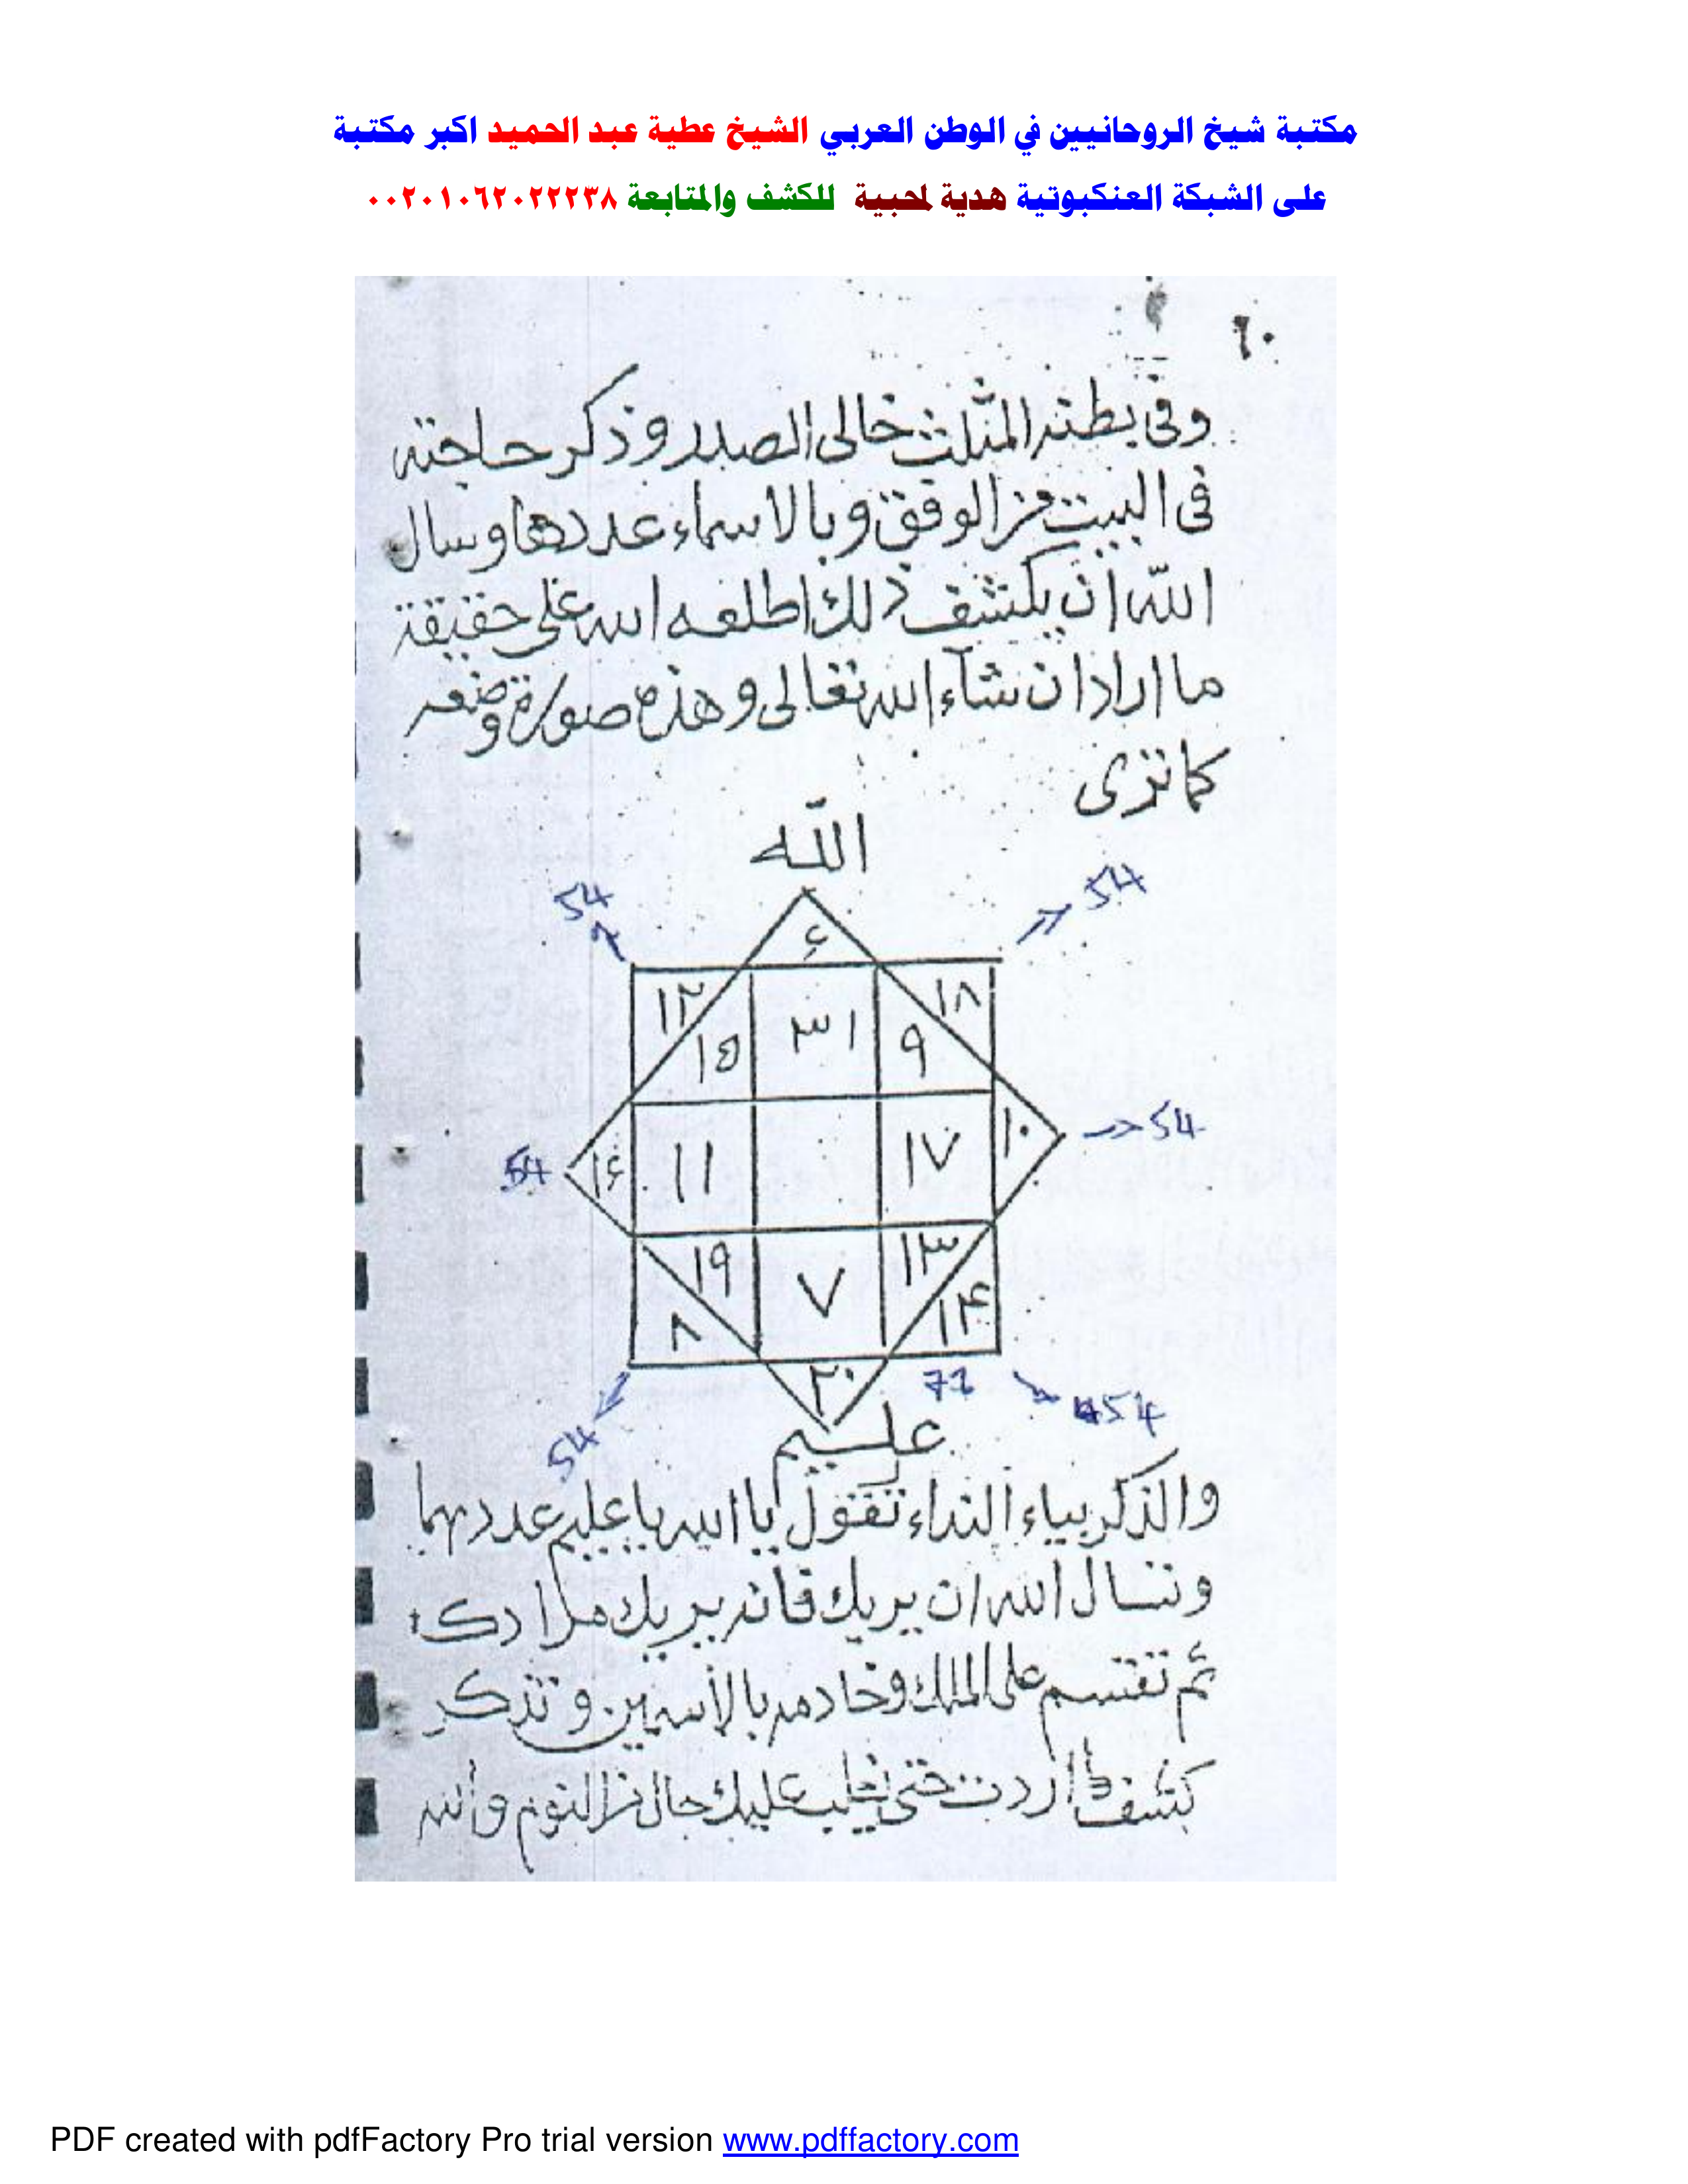 مكتبة شيخ الروحانيين في الوطن العربي الشيخ عطية عبد الحميد اكبر مكتبة
على الشبكة العنكبوتية هدية لمحبية للكشف والمتابعة ٠٠٢٠١٠٦٢٠٢٢٢٣٨
٦٠
وفى بطنه المثلث خالى الصدر وذكر حاجته
فى البيت من الوفق وبالاسماء عددها وسال
الله ان يكشف ذلك اطلعه الله على حقيقة
ما اراد ان شاء الله تعالى وهذه صورة وضعه
كما ترى
الله
54 54
٤
١٢ ١٨
١٥ ٣١ ٩
54 ١٤ ١١ ١٧ ١٠ 54
١٩ ٧ ١٣
٨ ١۴
٢٠ 71
54 54
عليم
والذكر بياء النداء تقول يا الله يا عليم عددهما
وتسال الله ان يريك فانه يريك مرادك
ثم تقسم على الملك وخادمه بالأسمين وتذكر
كشف ما اردت حتى يغلب عليك حال من النوم والله
PDF created with pdfFactory Pro trial version www.pdffactory.com